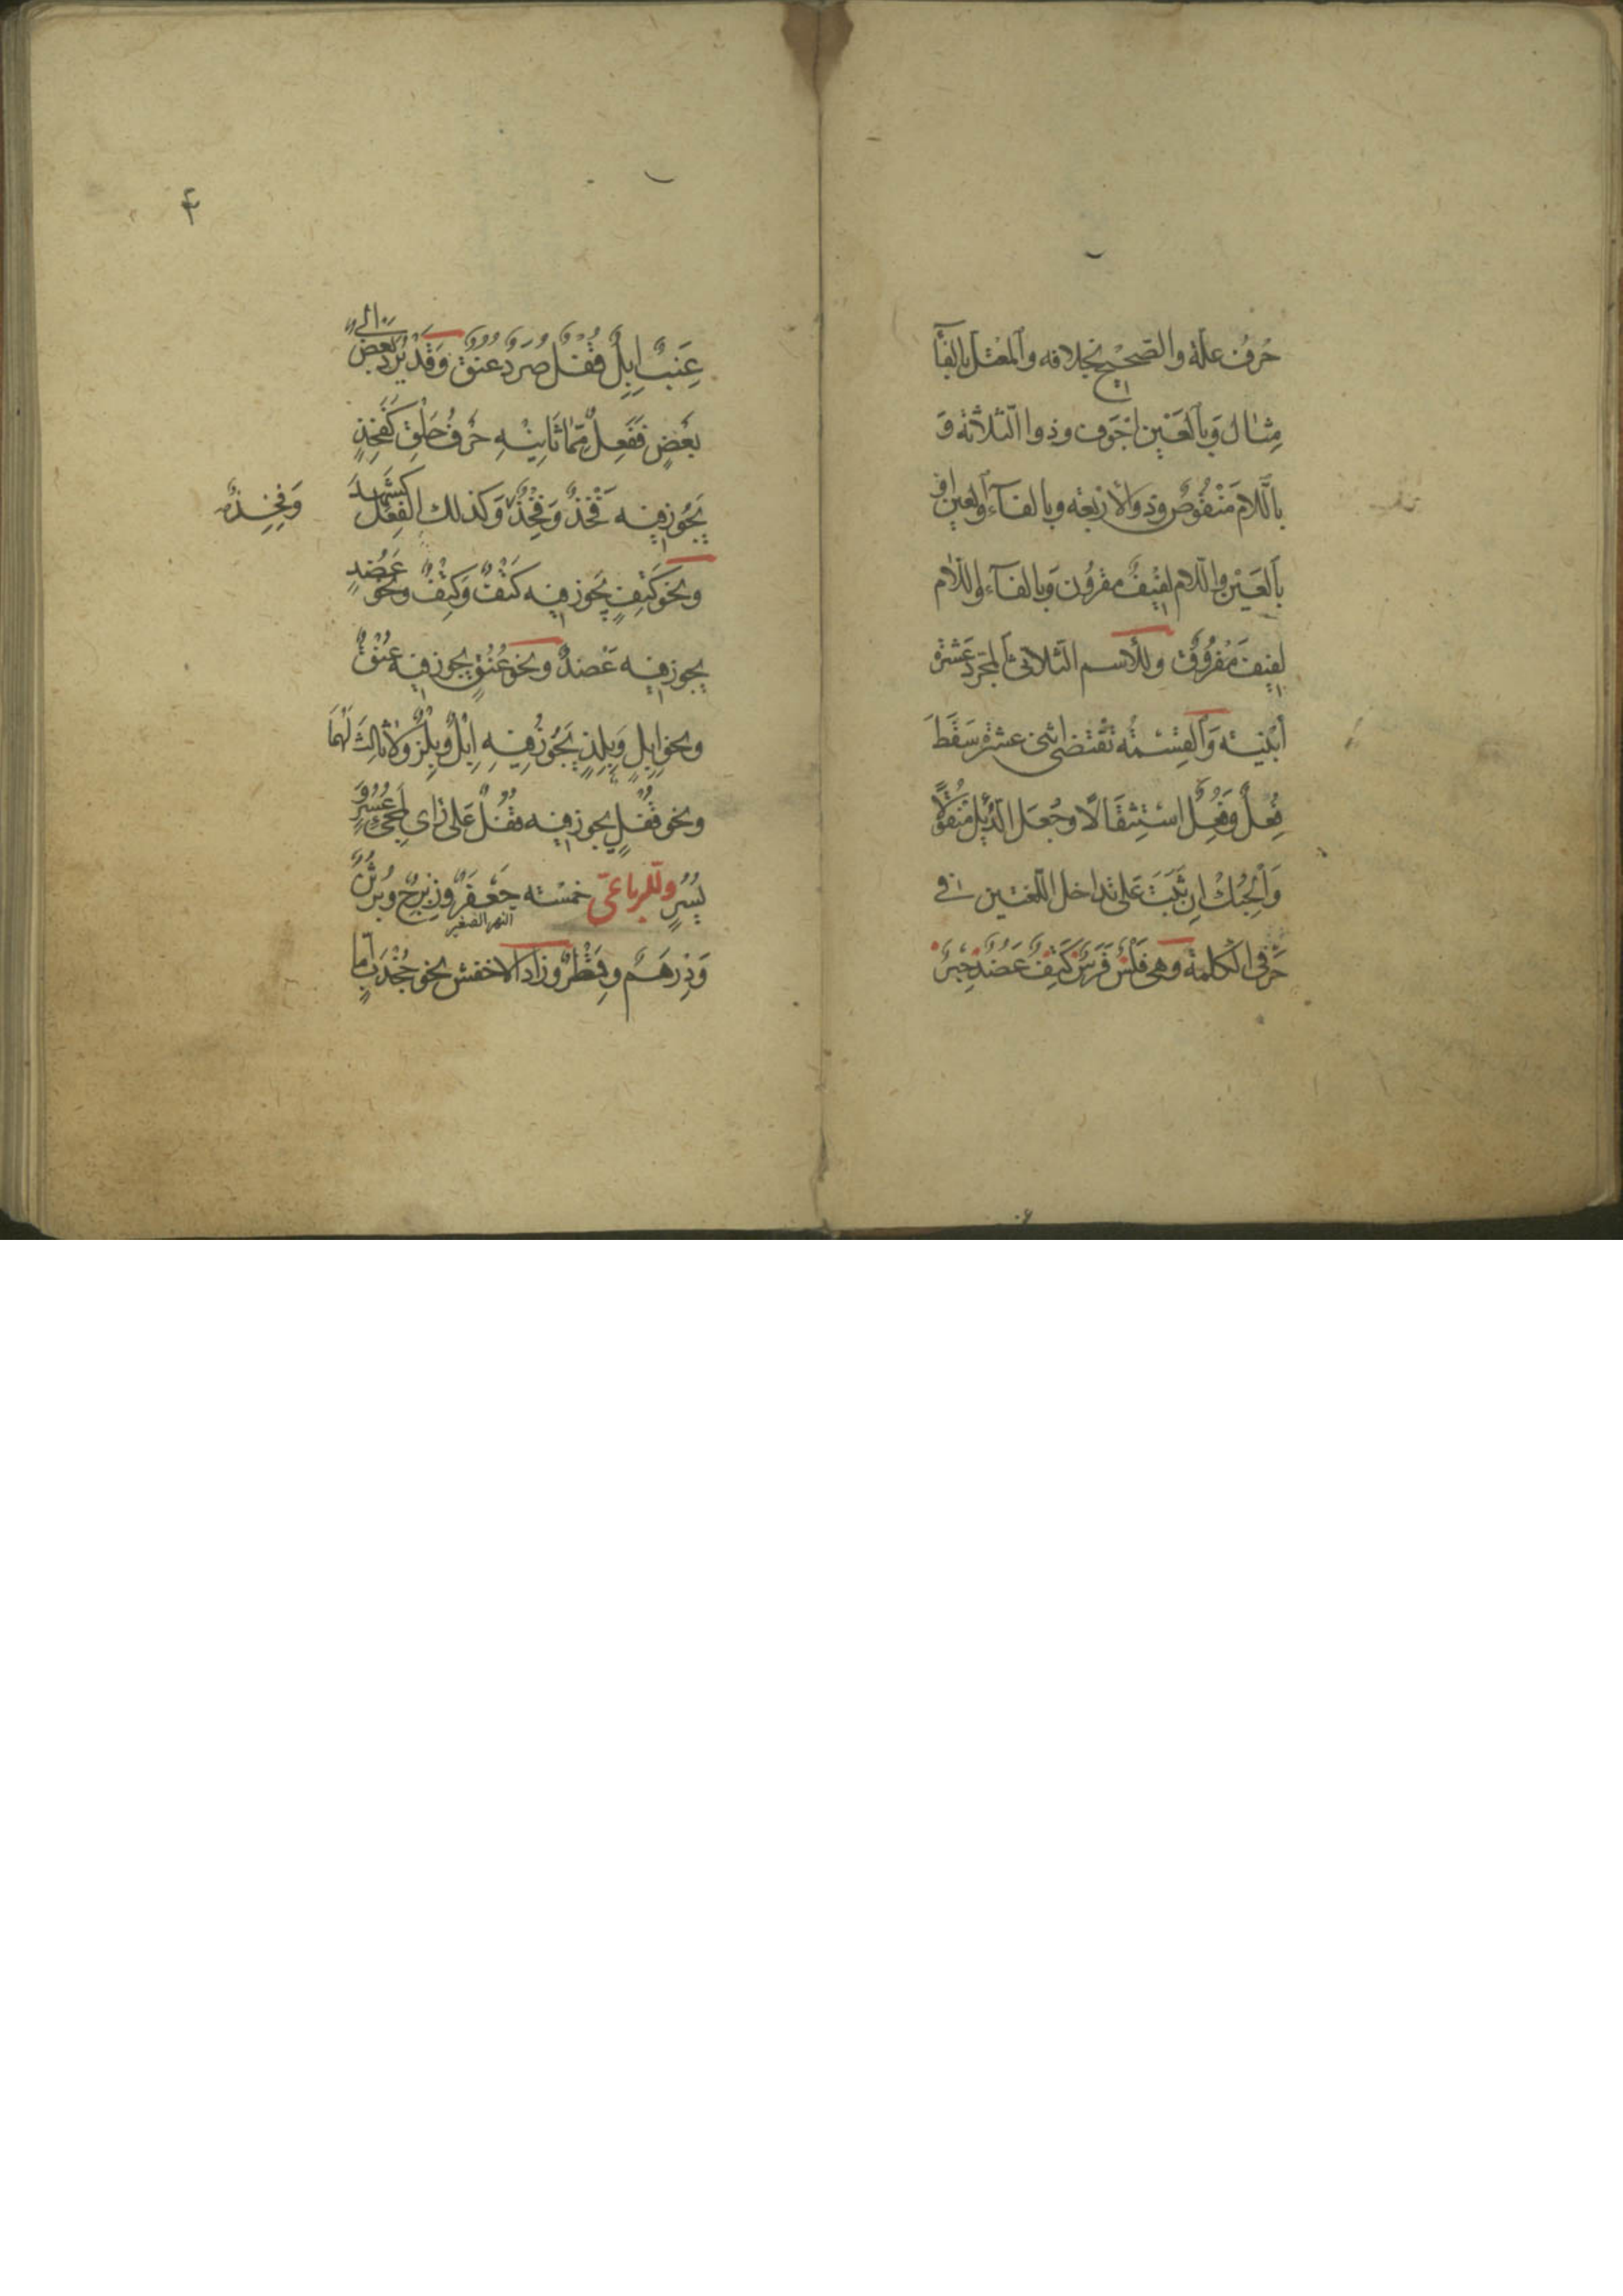 حَرْفُ علّة والصّحيْح بخلافه وَالمعْتل بالفآء
مِثال وَبالعَيْن اجْوَف وذوا الثّلاثة وَ
باللّام مَنْقُوصٌ وذو الأربعة وبالفآء والعين او
بالعَيْن واللّام لفيْفٌ مقرُون وَبالفآء واللّام
لفيْفٌ مَفْرُوقٌ وللأسم الثّلاثىّ المجرّد عَشرة
ابْنية وَالقِسْمة تقْتضى اثنى عشرة سَقَطَ
فِعُلٌ وَفُعِلٌ اسْتِثقَالًا وجُعلَ الدُّئِل مَنقُولًا
وَالْحِبُكُ ان ثَبَتَ عَلى تداخل اللّغتين فى
حَرْفى الكلمة وهى فَلْسٌ فَرَسٌ كَتِفٌ عَضُدٌ حِبْرٌ
۴
عِنَبٌ اِبِلٌ قُفْلٌ صُرَدٌ عُنُقٌ وَقَدْ يُرَدّ بعض الى
بَعْضٍ فَفَعِلٌ مِمّا ثَانِيْهِ حَرْفُ حَلْقٍ كَفَخِذٍ
يَجُوز فيه فَخْذٌ وَفِخْذٌ وَكذلك الفِعْل كشَهِدَ
وَفِخِذٌ
ونحو كَتِفٍ يَجُوز فيه كَتْفٌ وَكِتْفٌ ونحو عَضُدٍ
يجوز فيه عَضْدٌ ونحو عُنُقٍ يجوز فيه عُنْقٌ
ونحو اِبِلٍ وَبِلِزٍ يَجُوزُ فِيْهِ اِبْلٌ وَبِلْزٌ ولا ثالِثَ لَهُمَا
ونحو قُفْلٍ يجوز فيه قُفُلٌ عَلى راى لمجىء عُسُرٍ وَ
يُسُرٍ وللرباعىّ خمْسَة جَعْفَرٌ وزِبْرِجٌ وبُرْثُنٌ
النهر الصغير
وَدِرْهَمٌ وقِمَطْرٌ وزادَ الاخفش نحو جُخْدَبٍ امّا